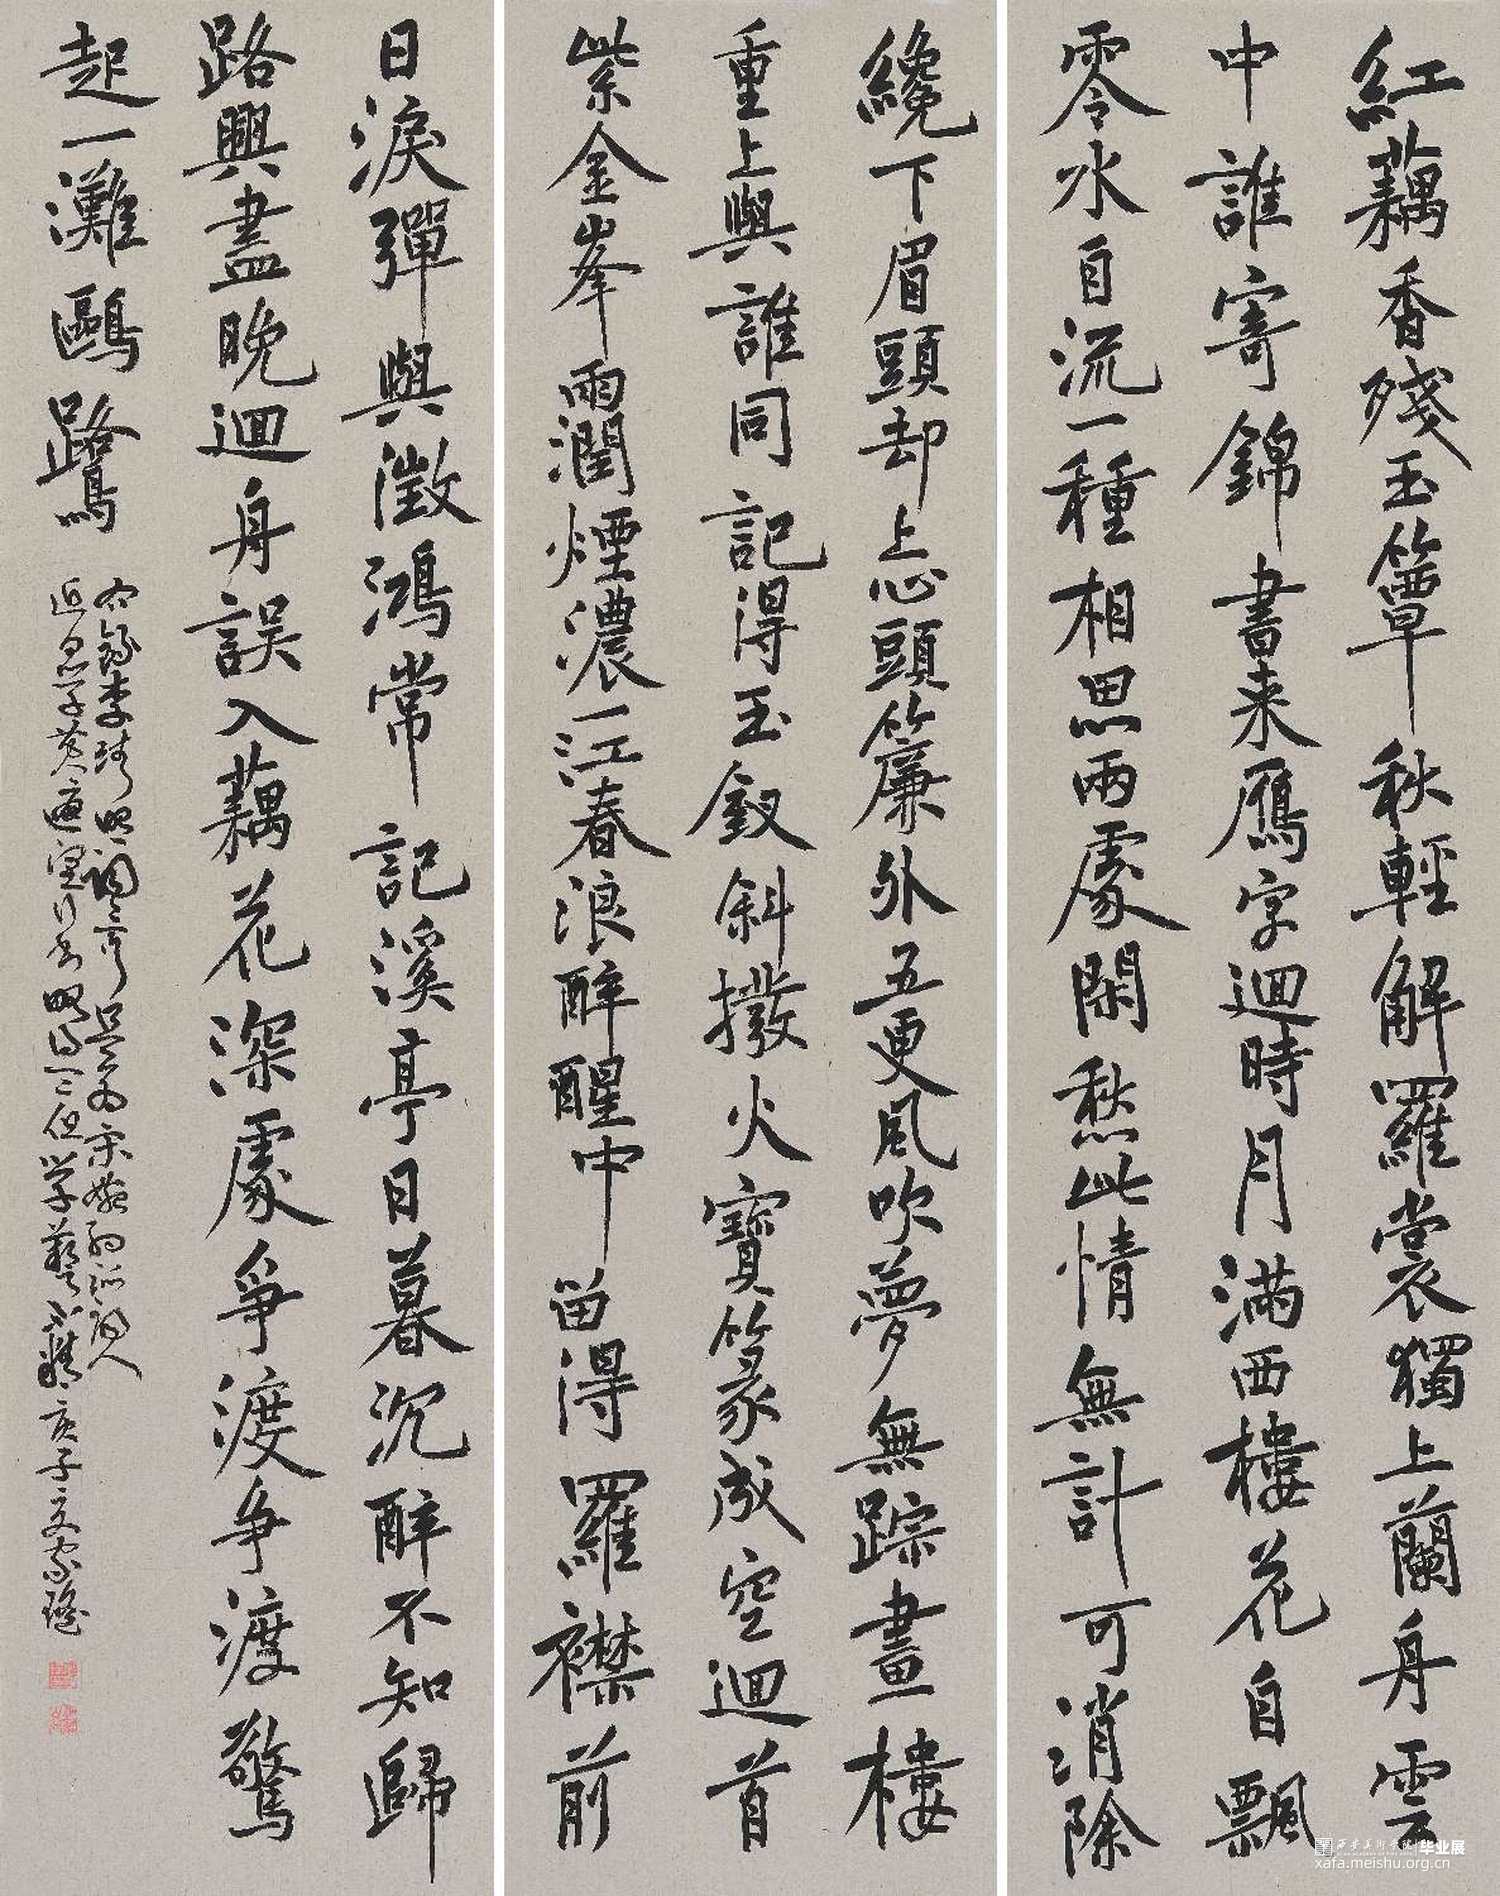 紅藕香殘玉簟秋輕解羅裳獨上蘭舟雲
中誰寄錦書来鴈字迴時月滿西樓花自飄
零水自流一種相思兩處閑愁此情無計可消除
纔下眉頭却上心頭簾外五更風吹夢無踪畫樓
重上與誰同記得玉釵斜撥火寶篆成空迴首
紫金峯雨潤煙濃一江春浪醉醒中留得羅襟前
日淚彈與徵鴻常記溪亭日暮沉醉不知歸
路興盡晚迴舟誤入藕花深處爭渡爭渡驚
起一灘鷗鷺
右錄李清照詞三首
庚子文家瑤
西安美術學院 毕业展
xafa.meishu.org.cn